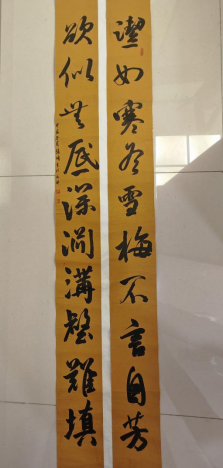 潔如寒冬雪梅不言自芳
欲似無底深澗溝壑難填